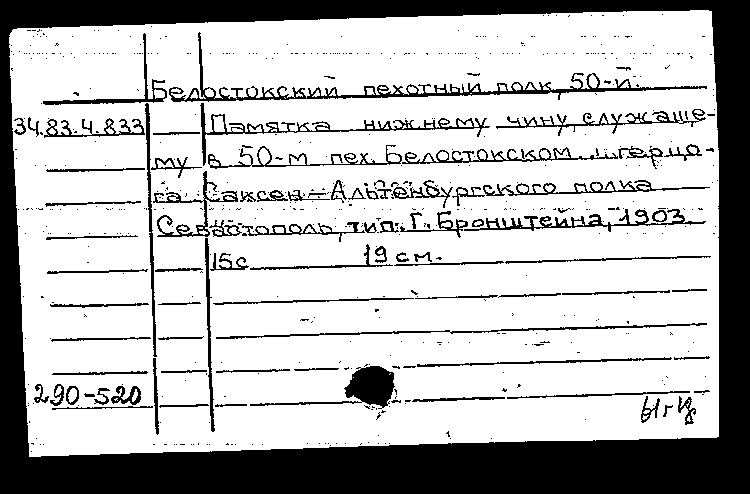 Белостокский пехотный полк, 50-й.
34.83.4.833 Памятка нижнему чину, служаще-
му в 50-м пех. Белостокском герцо-
га Саксен-Альтенбургского полка
Севастополь, тип. Г. Бронштейна, 1903.
15с 19 см.
290-520